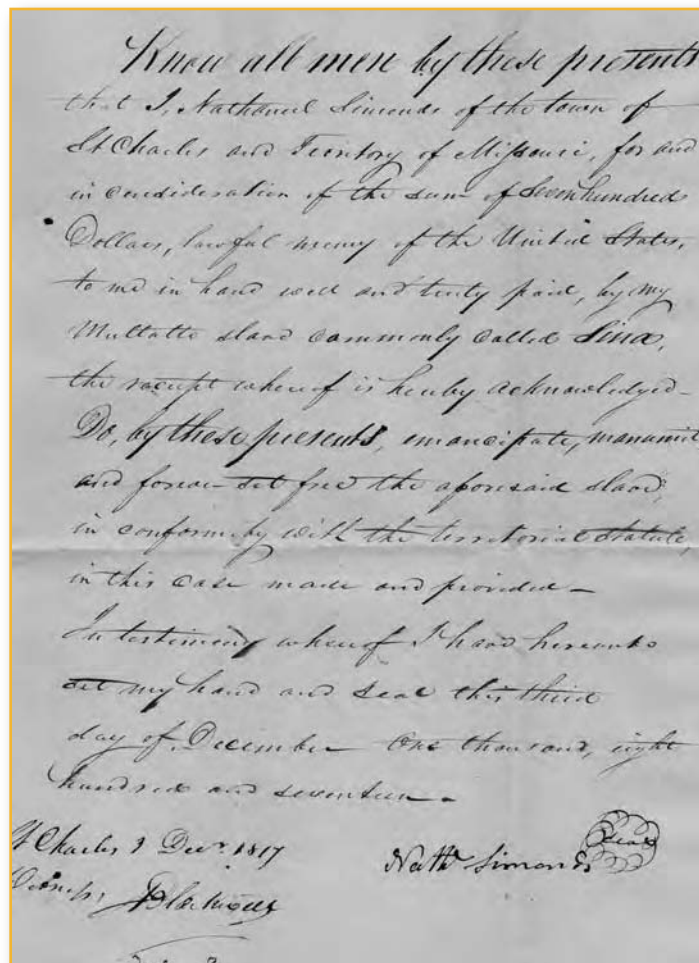 Know all men by these presents
that I, Nathaniel Simonds of the town of
St Charles and Territory of Missouri, for and
in consideration of the sum of Seven hundred
Dollars, lawful money of the United States,
to me in hand well and truly paid, by my
Mullatto slave commonly called Lina,
the receipt whereof is hereby acknowledged—
Do, by these presents, emancipate, manumit
and forever set free the aforesaid slave,
in conformity with the territorial statute,
in this case made and provided—
In testimony whereof I have hereunto
set my hand and seal this third
day of December One thousand, eight
hundred and seventeen—
St Charles 3 Decr. 1817
Nathl Simonds seal
Witness,